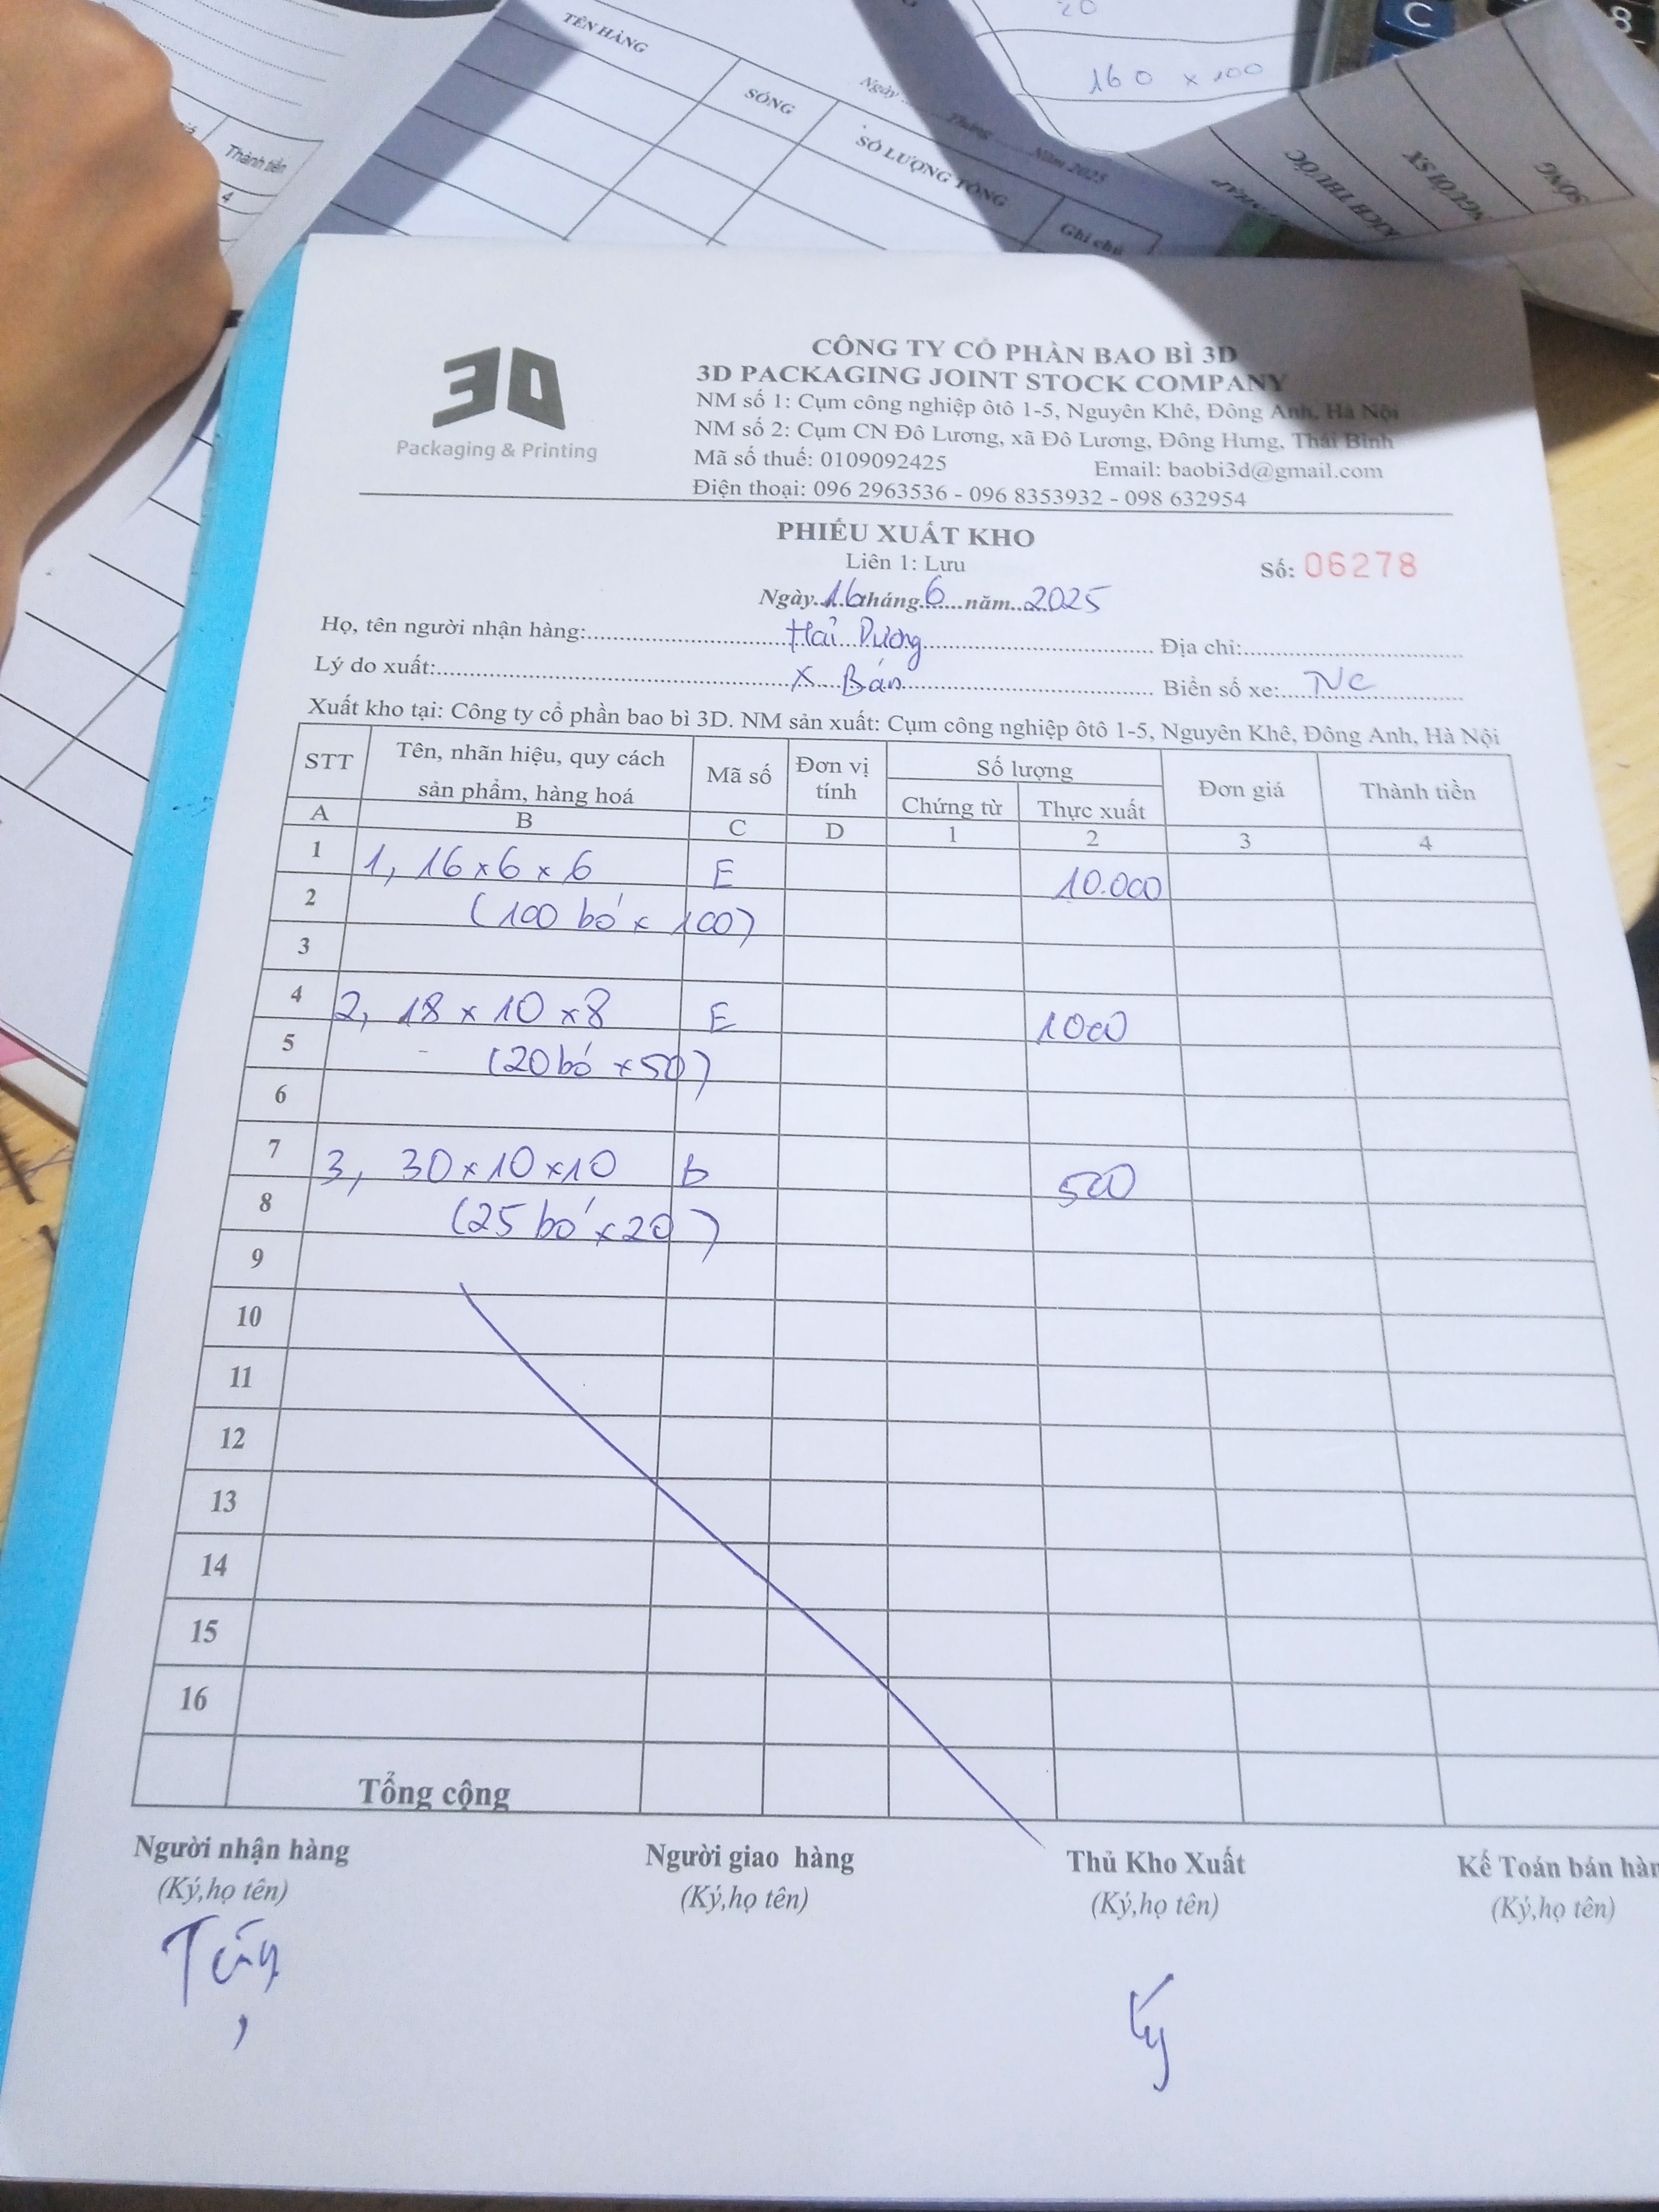 20
160 x 100
C
8
TÊN HÀNG
SÓNG
SỐ LƯỢNG TỔNG
Ghi chú
Ngày ........ Tháng ........ Năm 2025
KÍCH THƯỚC
NGƯỜI SX
SÓNG
Thành tiền
4
3D
Packaging & Printing
CÔNG TY CỔ PHẦN BAO BÌ 3D
3D PACKAGING JOINT STOCK COMPANY
NM số 1: Cụm công nghiệp ôtô 1-5, Nguyên Khê, Đông Anh, Hà Nội
NM số 2: Cụm CN Đô Lương, xã Đô Lương, Đông Hưng, Thái Bình
Mã số thuế: 0109092425 Email: baobi3d@gmail.com
Điện thoại: 096 2963536 - 096 8353932 - 098 632954
PHIẾU XUẤT KHO
Liên 1: Lưu
Số: 06278
Ngày 16 tháng 6 năm 2025
Họ, tên người nhận hàng: Hải Dương Địa chỉ:
Lý do xuất: X Bán Biển số xe: NC
Xuất kho tại: Công ty cổ phần bao bì 3D. NM sản xuất: Cụm công nghiệp ôtô 1-5, Nguyên Khê, Đông Anh, Hà Nội
STT Tên, nhãn hiệu, quy cách sản phẩm, hàng hoá Mã số Đơn vị tính Số lượng Đơn giá Thành tiền
Chứng từ Thực xuất
A B C D 1 2 3 4
1 1, 16 x 6 x 6 E 10.000
2 (100 bó x 100)
3
4 2, 18 x 10 x 8 E 1000
5 (20 bó x 50)
6
7 3, 30 x 10 x 10 b 500
8 (25 bó x 20)
9
10
11
12
13
14
15
16
Tổng cộng
Người nhận hàng Người giao hàng Thủ Kho Xuất Kế Toán bán hàn
(Ký,họ tên) (Ký,họ tên) (Ký,họ tên) (Ký,họ tên)